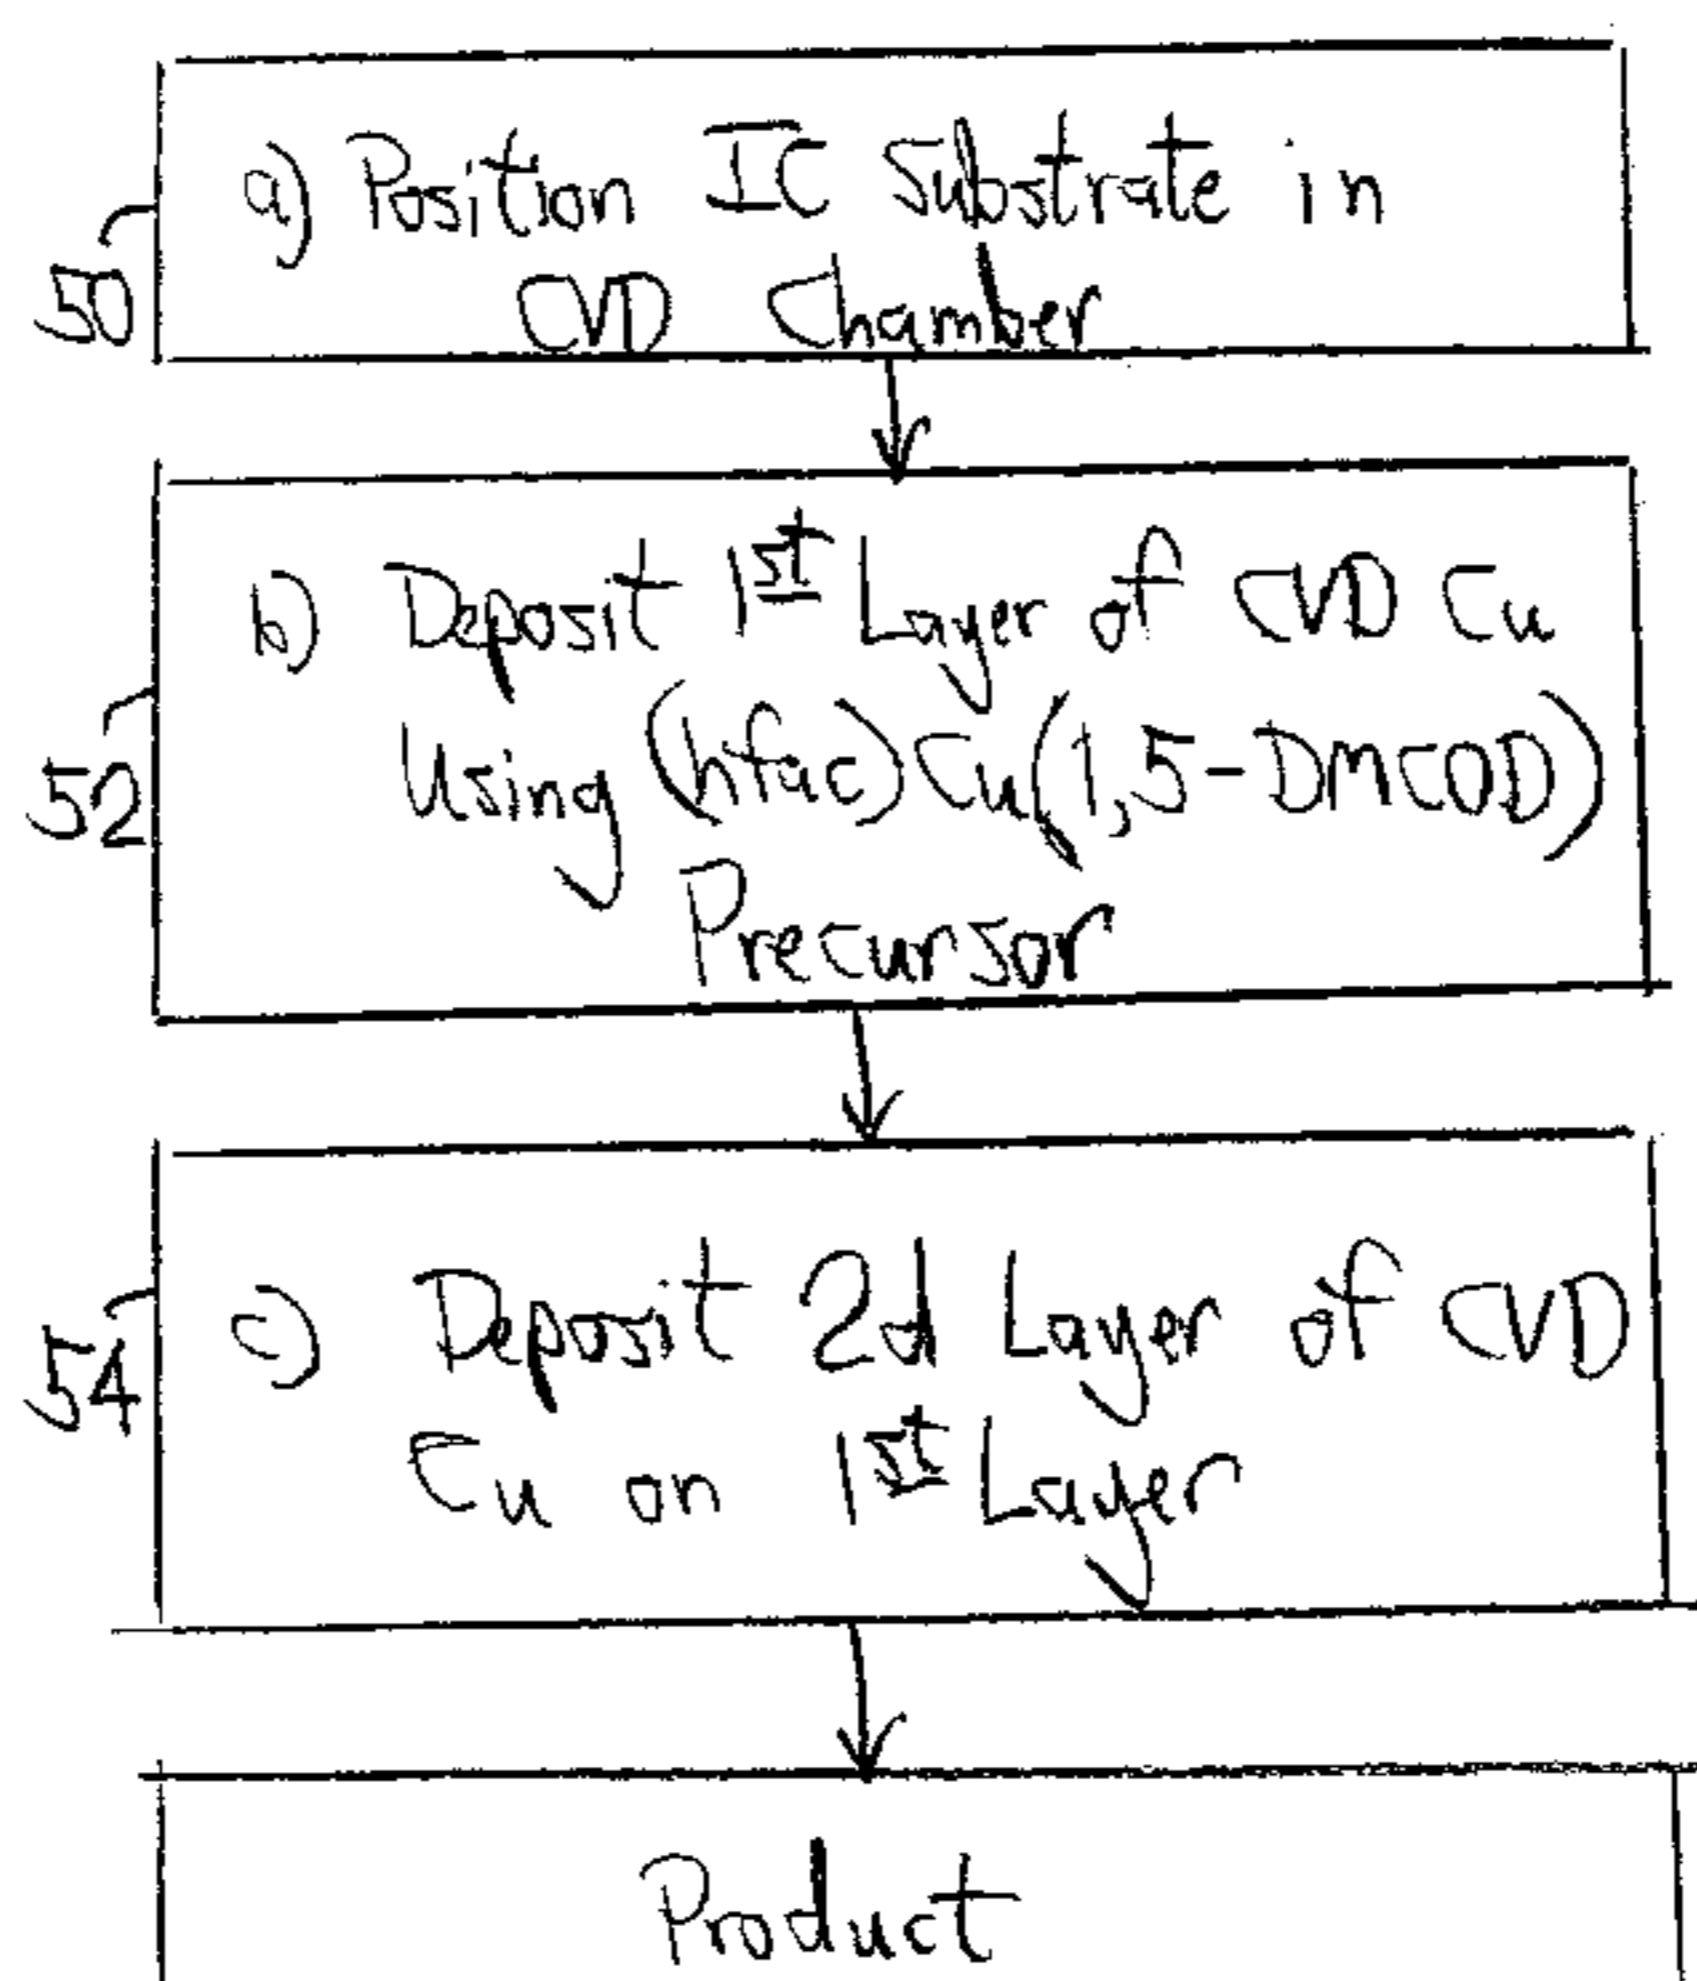 a) Position IC Substrate in
CVD Chamber
50
b) Deposit 1st Layer of CVD Cu
Using (hfac)Cu(1,5-DMCOD)
Precursor
52
c) Deposit 2d Layer of CVD
Cu on 1st Layer
54
Product